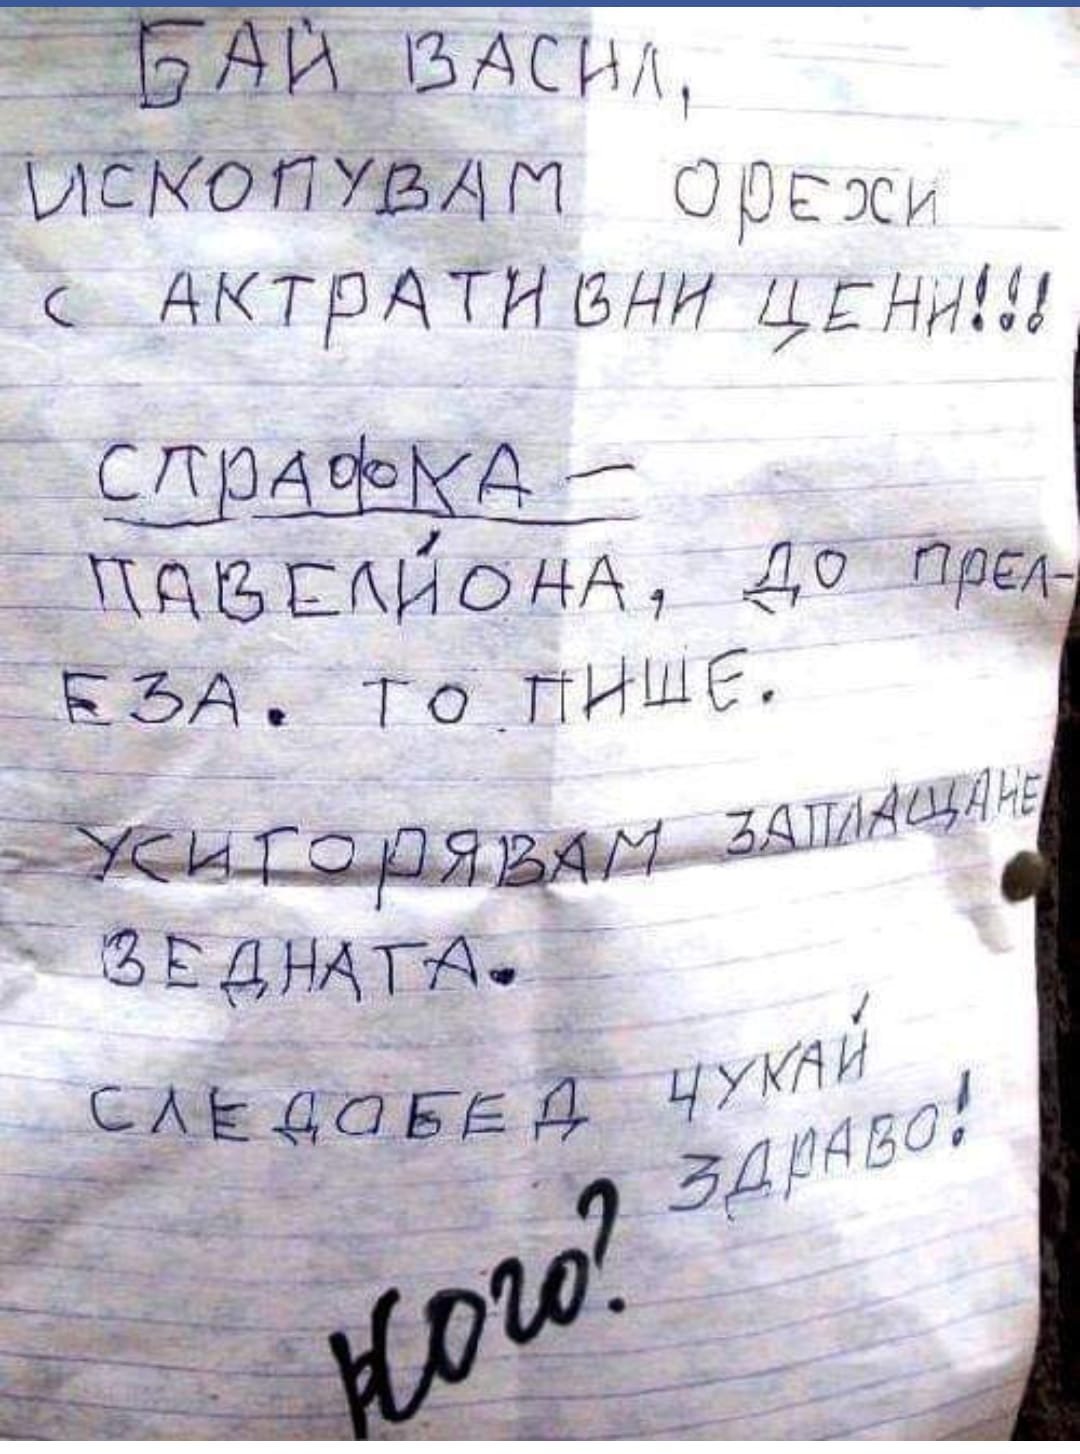 БАЙ ВАСИЛ,
ИСКОПУВАМ ОРЕХИ
С АКТРАТИВНИ ЦЕНИ!!!
СПРАФКА –
ПАВЕЛЙОНА, ДО ПРЕЛ-
ЕЗА. ТО ПИШЕ.
УСИГОРЯВАМ ЗАПЛАЩАНЕ
ЗЕДНАГА.
СЛЕДОБЕД ЧУКАЙ
ЗДРАВО!
Кого?